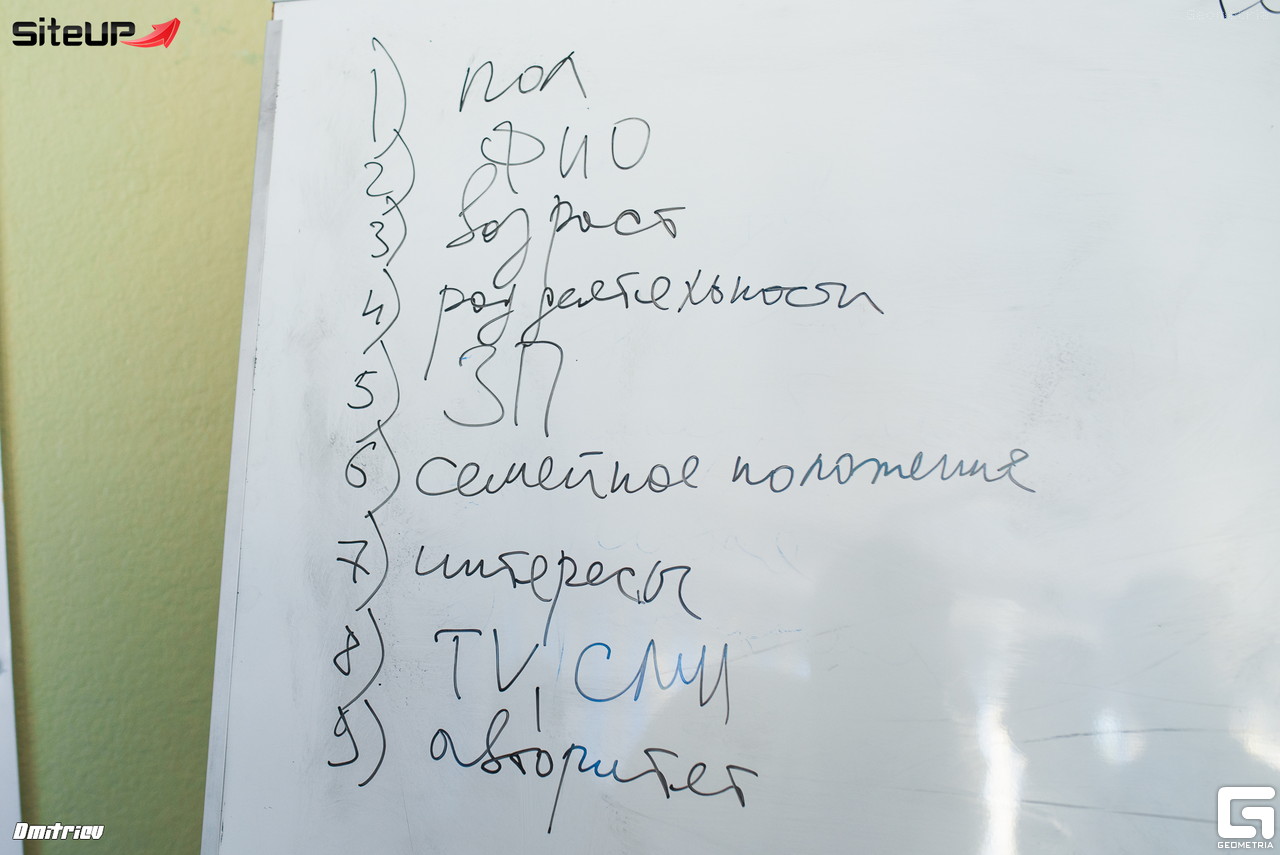 SiteUP
1) пол
2) ФИО
3) возраст
4) род деятельности
5) ЗП
6) семейное положение
7) интересы
8) TV, СМИ
9) авторитет
Dmitriev
GEOMETRIA